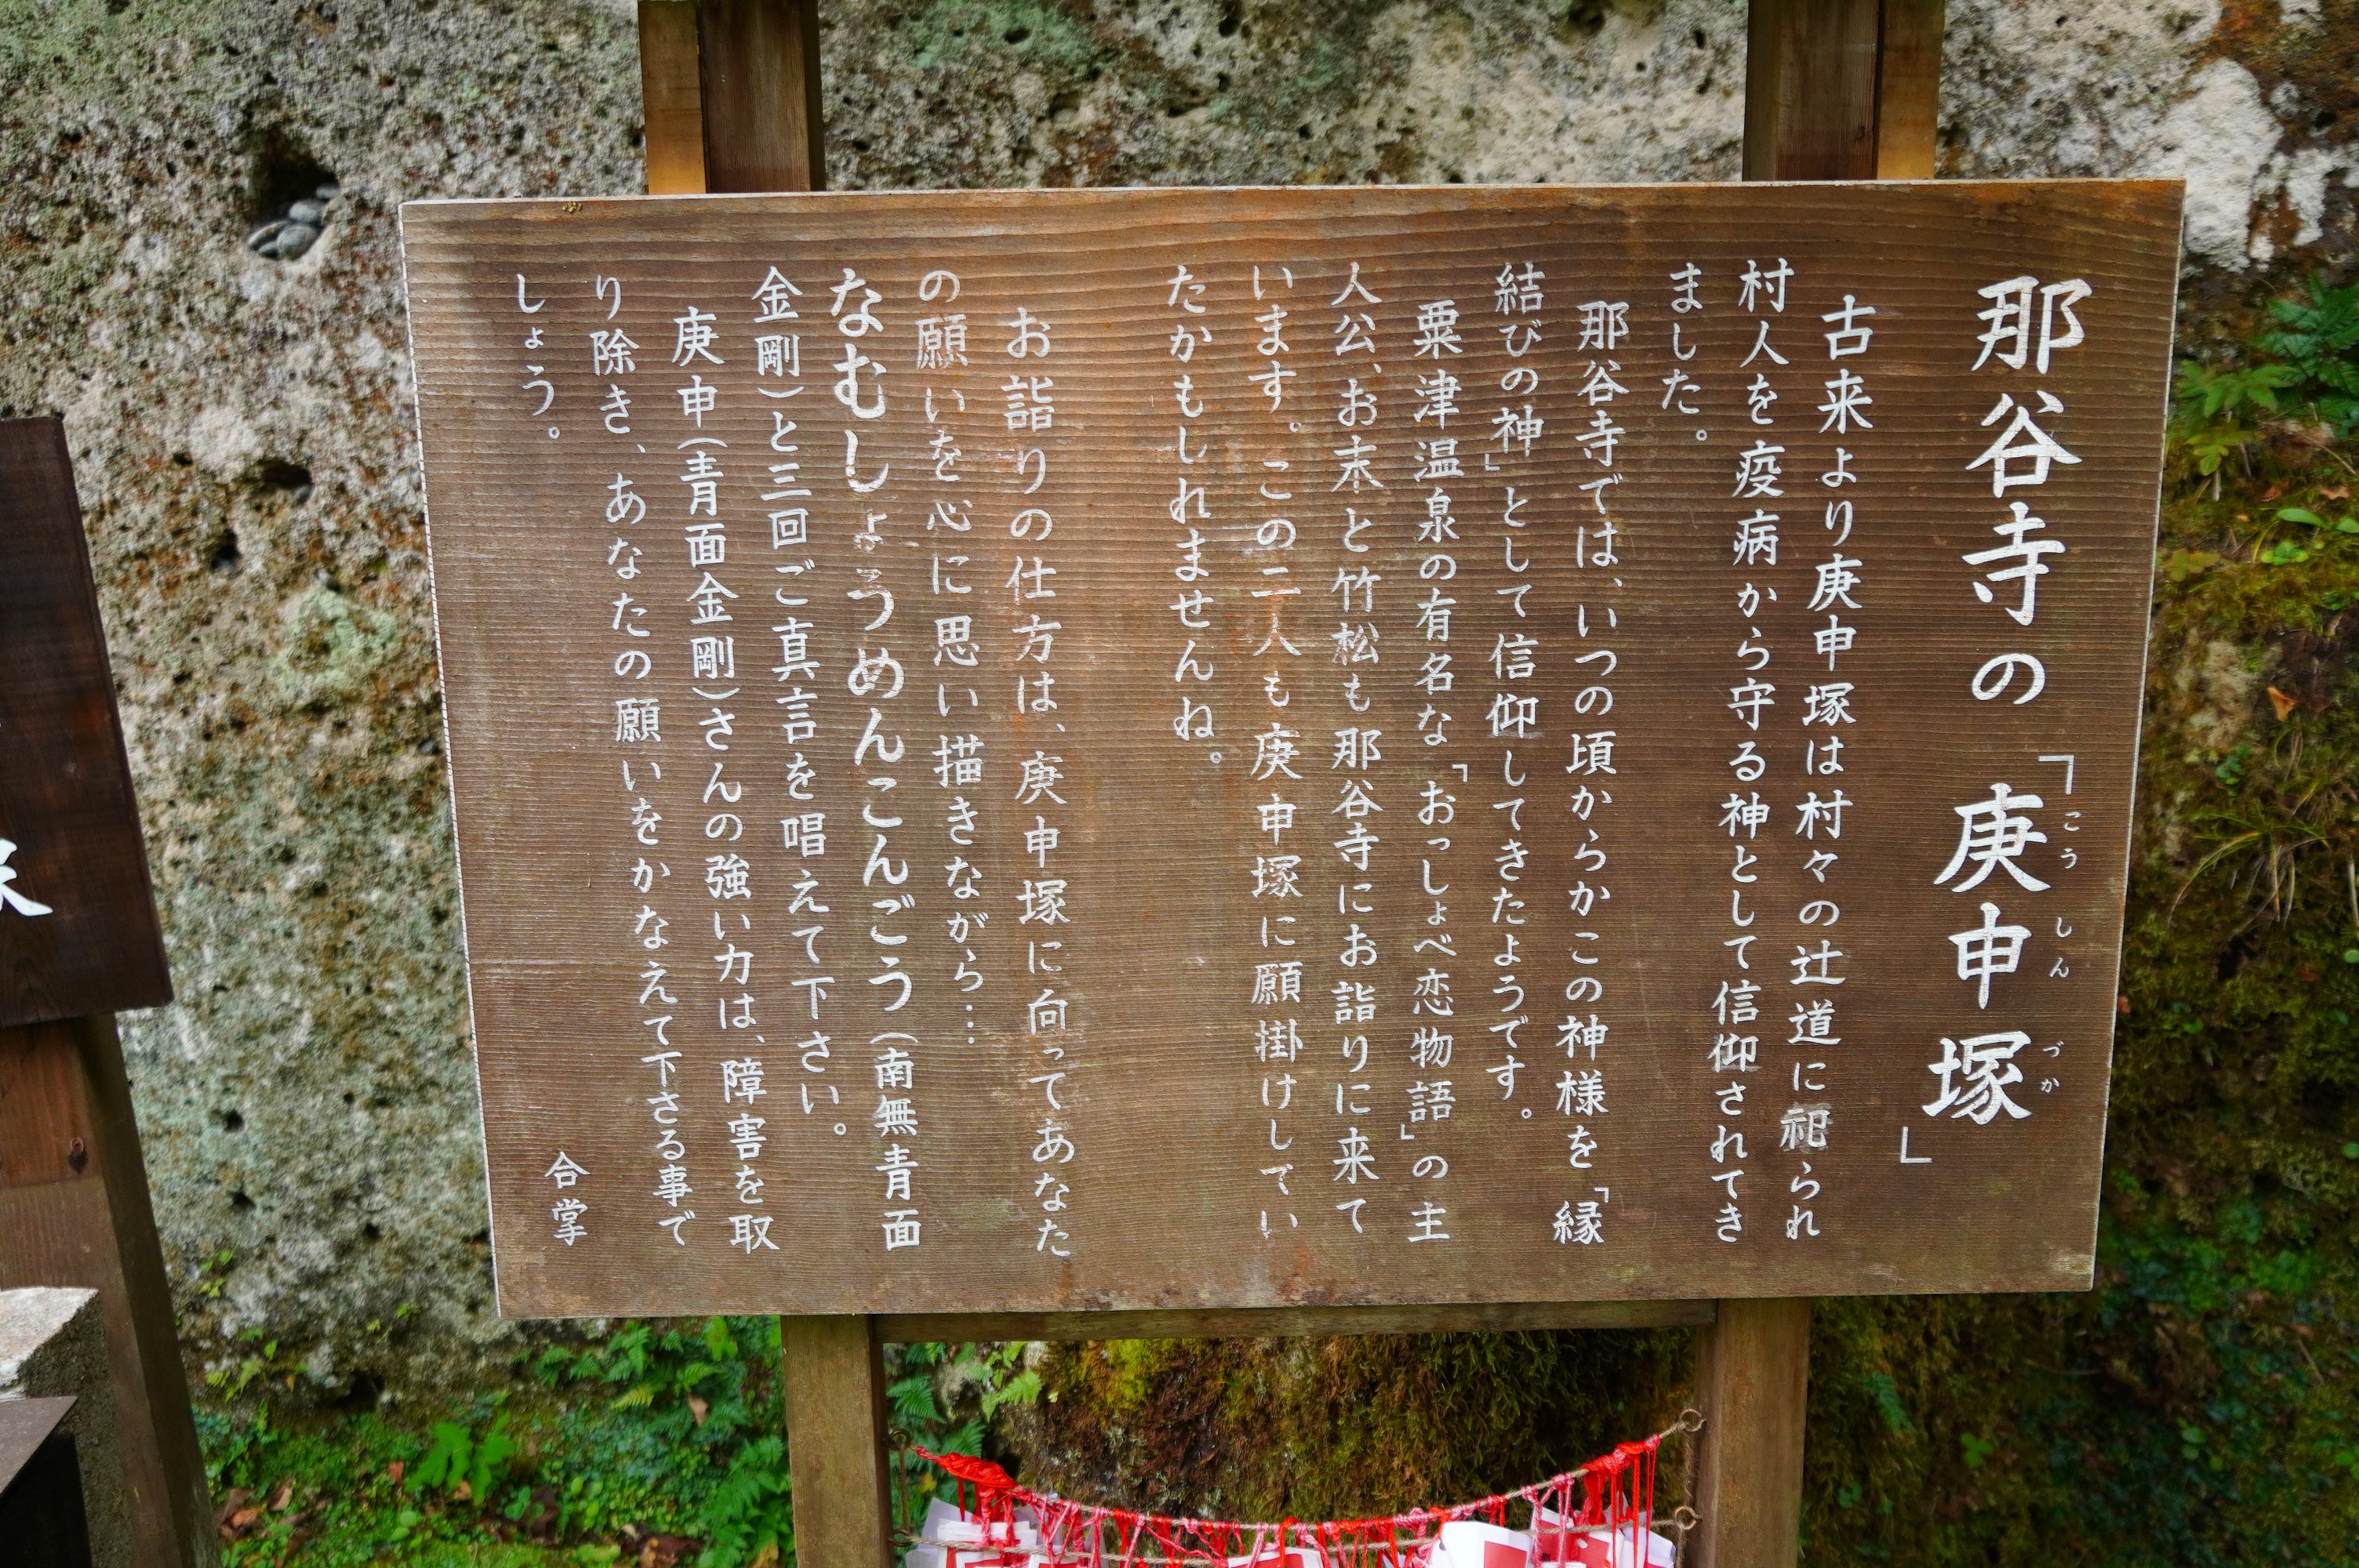 那谷寺の「庚申塚」
こうしんづか
古来より庚申塚は村々の辻道に祀られ
村人を疫病から守る神として信仰されてき
ました。
那谷寺では、いつの頃からかこの神様を「縁
結びの神」として信仰してきたようです。
粟津温泉の有名な「おっしょべ恋物語」の主
人公、お末と竹松も那谷寺にお詣りに来て
います。この二人も庚申塚に願掛けしてい
たかもしれませんね。
お詣りの仕方は、庚申塚に向ってあなた
の願いを心に思い描きながら…
なむしょうめんこんごう(南無青面
金剛)と三回ご真言を唱えて下さい。
庚申(青面金剛)さんの強い力は、障害を取
り除き、あなたの願いをかなえて下さる事で
しょう。
合掌